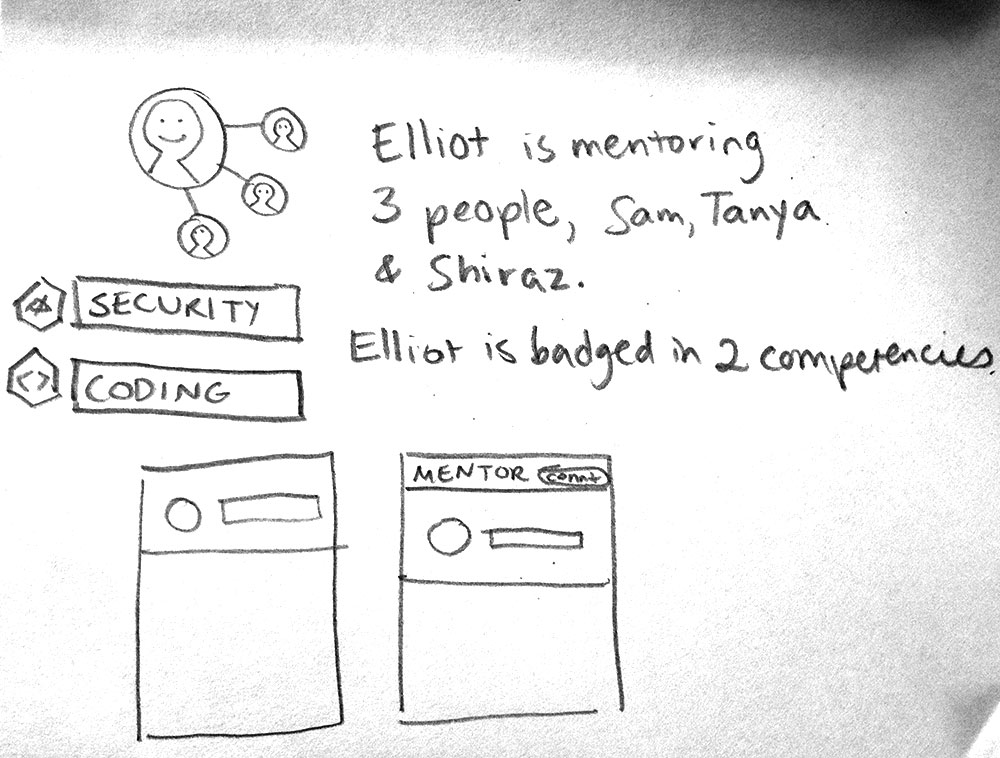 Elliot is mentoring
3 people, Sam, Tanya
& Shiraz.
SECURITY
Elliot is badged in 2 competencies.
<> CODING
MENTOR